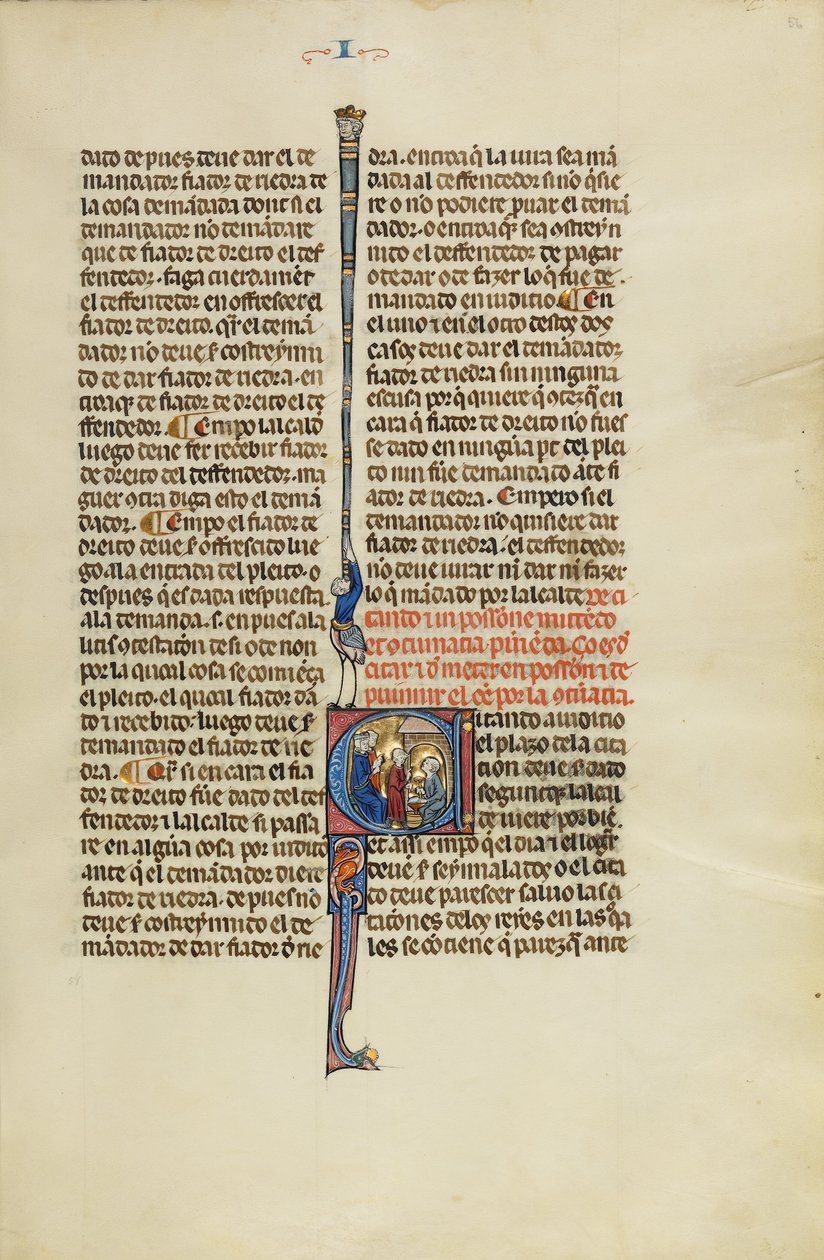 I
56
dado de pues deue dar el de
mandador fiador de riedra de
la cosa demādada dont si el
demandador nō demādare
que de fiador de dreito el def
fendedor. faga cuerdamēt
el deffendedor en offrescer el
fiador de dreito. qr̄ el demā
dador nō deue ſ costreynni
do de dar fiador de riedra. en
tro aq̄ de fiador de dreito el de
ffendedor. ¶ Empo lalcald
luego deue fer recebir fiador
de dreito del deffendedor. ma
guer ꝯtra diga esto el demā
dador. ¶ Empo el fiador de
dreito deue ſ offrescito lue
go. a la entrada del pleito. o
despues q̄ es dada respuesta
a la demanda. s. en pues a la
litis ꝯtestatōn de si o de non
por la quoal cosa se comiēça
el pleito. el quoal fiador dā
do ⁊ recebido. luego deue ſ
demandado el fiador de rie
dra. ¶ Qr̄ si en cara el fia
dor de dreito fue dado del def
fendedor ⁊ lalcalde si passa
re en algūa cosa por iudiçio
ante q̄ el demādador diere
fiador de riedra. de pues nō
deue ſ costreynnido el de
mādador de dar fiador d̄ rie
dra. entroa q̄ la iura sea mā
dada al deffendedor si nō q̄sie
re o no podiere p̄uar el demā
dador. o entroa q̄ sea ꝯstreyn
nido el deffendedor de pagar
o de dar o de fazer lo q̄ fue de
mandado en iuditio. ¶ En
el uno ⁊ en el otro destos dos
casos deue dar el demādador
fiador de riedra sin ninguna
escusa por q̄ quiere q̄ ꝯtezq̄ en
cara q̄ fiador de dreito nō fues
se dado en ningūa pt̄ del plei
to nin fue demandado āte fi
ador de riedra. Empero si el
demandador nō quisiere dar
fiador de riedra. el deffendedor
nō deue iurar ni dar ni fazer
lo q̄ mādado por lalcalde De ci
tando ⁊ in possōne mittēdo
et ꝯtumatia puniēda. Ço es d̄
citar ⁊ d̄ meter en possōn ⁊ de
punnir el ōē por la ꝯtūatia.
Citando a iuditio
el plazo de la cita
tion deue ſ dado
segunt q̄ lalcal
de uiere por biē.
et assi empo q̄ el dia ⁊ el logar
deue ſ seynnalados o el cita
do deue parescer saluo las ci
tatōnes de los reyes en las q̄a
les se cōtiene q̄ parezq̄ ante